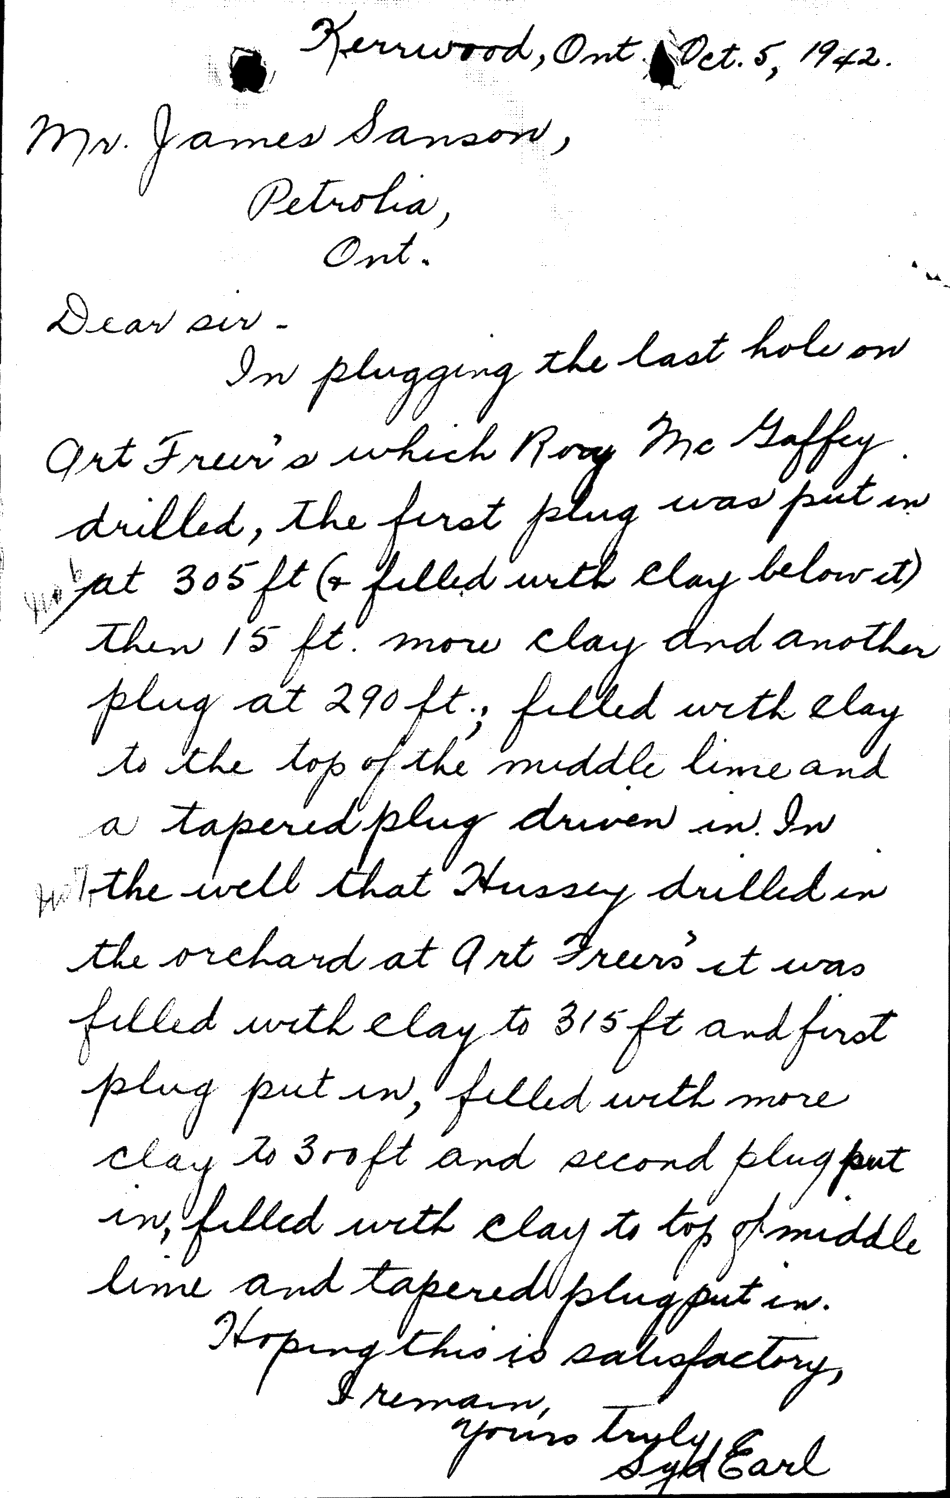 Kerrwood, Ont. Oct. 5, 1942.
Mr. James Sanson,
Petrolia,
Ont.
Dear sir -
In plugging the last hole on
Art Freer's which Roy Mc Gaffey
drilled, the first plug was put in
No 6
at 305 ft (& filled with clay below it)
then 15 ft. more clay and another
plug at 290 ft.; filled with clay
to the top of the middle lime and
a tapered plug driven in. In
No 7
the well that Hussey drilled in
the orchard at Art Freers' it was
filled with clay to 315 ft and first
plug put in, filled with more
clay to 300 ft and second plug put
in, filled with clay to top of middle
lime and tapered plug put in.
Hoping this is satisfactory,
I remain,
Yours truly,
Syd Earl